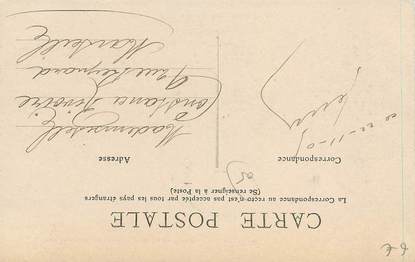 CARTE POSTALE
La Correspondance au recto n'est pas acceptée par tous les pays étrangers
(Se renseigner à la Poste)
Correspondance
Adresse
Mademoiselle
Constance
Marseille